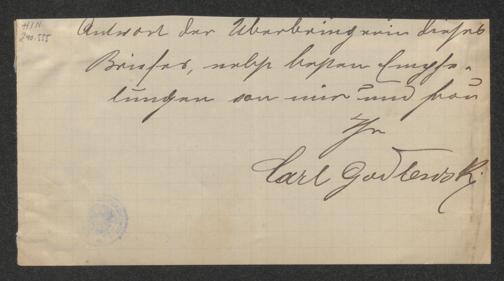 H.I.N.
240.555
Antwort der Überbringerin dieses
Briefes, nebst besten Empfe-
lungen von mir und Frau
Ihr
Carl Godlewski